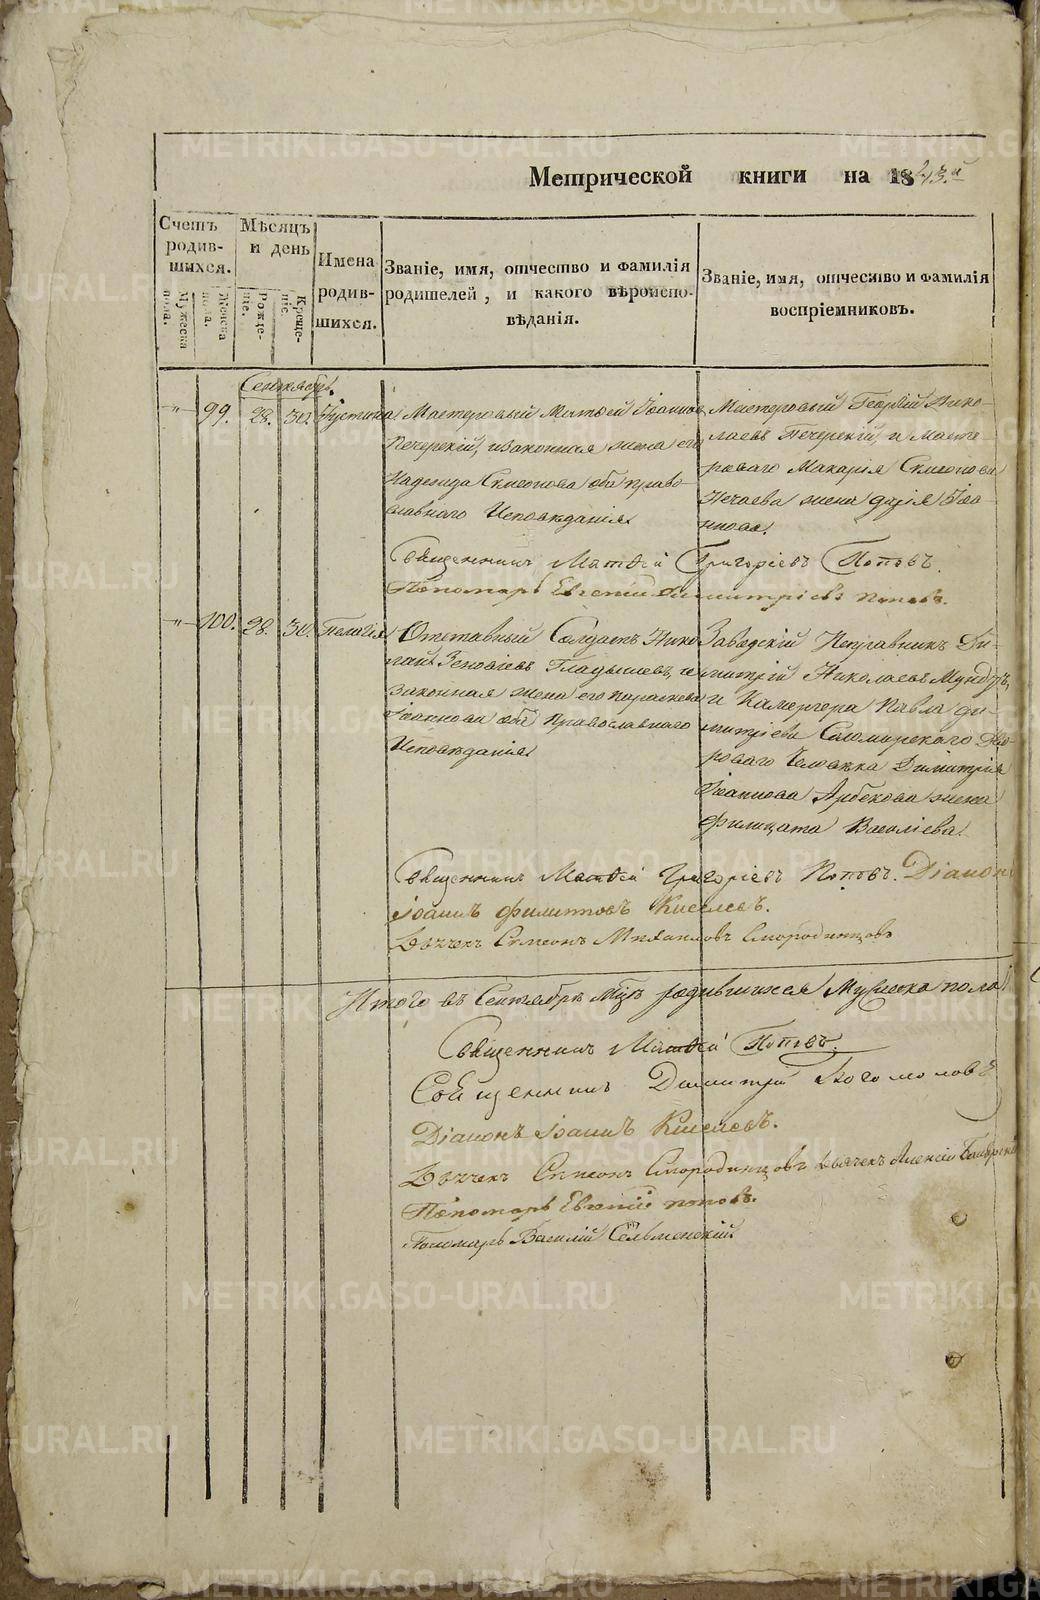 Метрической книги на 1843.й
Счетъ родившихся.
Мужеска пола.
Женска пола.
Мѣсяцъ и день
Рожденіе.
Крещеніе.
Имена родившихся.
Званіе, имя, отчество и фамилія
родителей, и какого вѣроиспо-
вѣданія.
Званіе, имя, отчество и фамилія
воспріемниковъ.
Сентябрь.
99. 28. 30. Іустина
Мастеровый Матѳей Іоанновъ
Печерскій, и законная жена его
Надежда Симеонова оба право-
славнаго Исповѣданія.
Мастеровый Георгій Нико-
лаевъ Печерскій, и Масте-
роваго Макарія Симеонова
Нечаева жена Дарія Іоа-
ннова.
Священникъ Матѳей Григоріевъ Поповъ.
Пономарь Евгеній Димитріевъ Поповъ.
100. 28. 30. Пелагія
Отставный Солдатъ Нико-
лай Зеновіевъ Гладышевъ, и
законная жена его Параскева
Іоаннова оба Православнаго
Исповѣданія.
Заводскій Исправникъ Ди-
митрій Николаевъ Мундтъ,
и Камергера Павла Ди-
митріева Саломирскаго Дво-
роваго Человѣка Димитрія
Іоаннова Арбекова жена
Филицата Василіева.
Священникъ Матѳей Григоріевъ Поповъ. Діаконъ
Іоаннъ Филипповъ Киселевъ.
Дьячекъ Симеонъ Михаиловъ Смородинцовъ
Итого въ Сентябрѣ Мцѣ родившихся Мужеска пола
Священникъ Матѳей Поповъ.
Священникъ Димитрій Богомоловъ
Діаконъ Іоаннъ Киселевъ.
Дьячекъ Симеонъ Смородинцовъ Дьячекъ Алексій
Пономарь Евгеній Поповъ.
Пономарь Василій Сельменскій.
METRIKI.GASO-URAL.RU